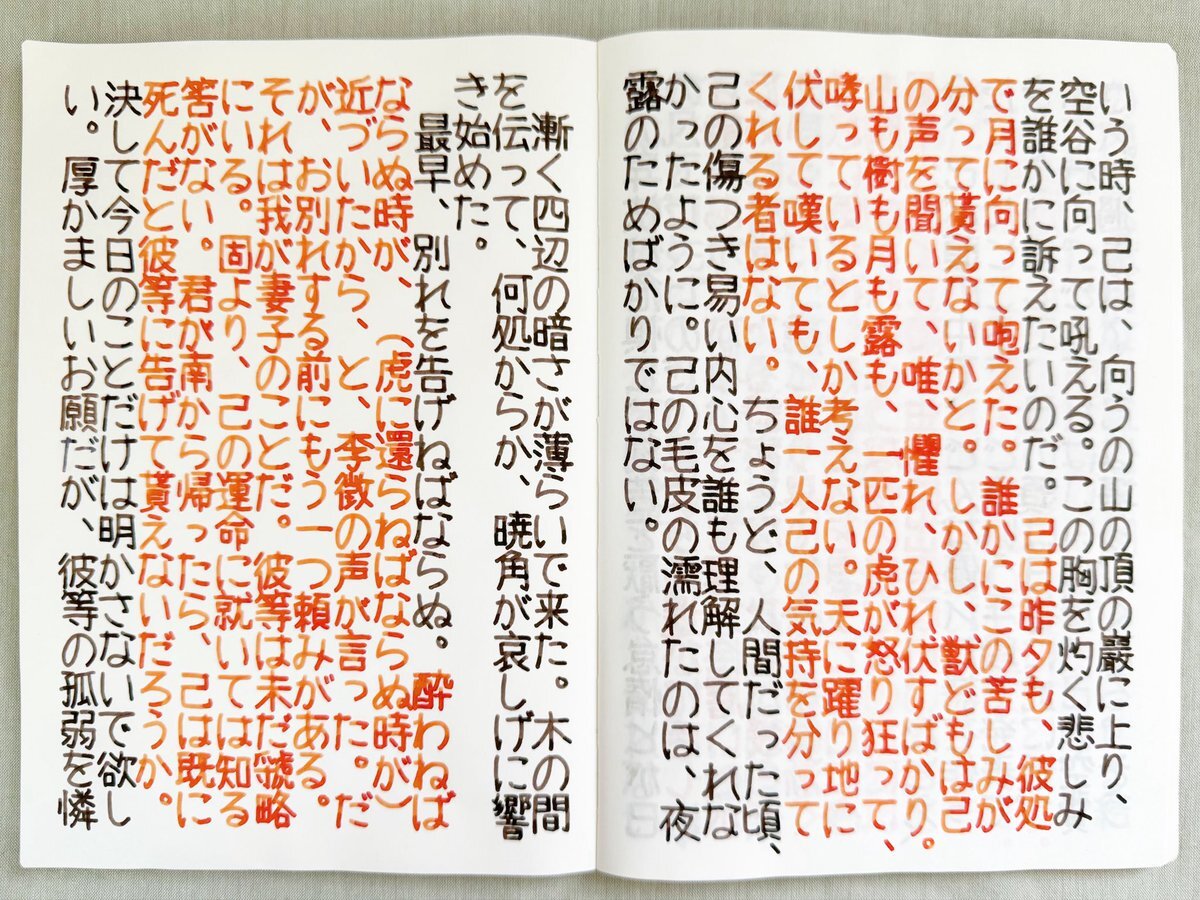 いう時、己は、向うの山の頂の巖に上り、
空谷に向って吼える。この胸を灼く悲しみ
を誰かに訴えたいのだ。己は昨夕も、彼処
で月に向って咆えた。誰かにこの苦しみが
分って貰えないかと。しかし、獣どもは己
の声を聞いて、唯、懼れ、ひれ伏すばかり。
山も樹も月も露も、一匹の虎が怒り狂って、
哮っているとしか考えない。天に躍り地に
伏して嘆いても、誰一人己の気持を分って
くれる者はない。ちょうど、人間だった頃、
己の傷つき易い内心を誰も理解してくれな
かったように。己の毛皮の濡れたのは、夜
露のためばかりではない。
漸く四辺の暗さが薄らいで来た。木の間
を伝って、何処からか、暁角が哀しげに響
き始めた。
最早、別れを告げねばならぬ。酔わねば
ならぬ時が、（虎に還らねばならぬ時が）
近づいたから、と、李徴の声が言った。だ
が、お別れする前にもう一つ頼みがある。
それは我が妻子のことだ。彼等は未だ虢略
にいる。固より、己の運命に就いては知る
筈がない。君が南から帰ったら、己は既に
死んだと彼等に告げて貰えないだろうか。
決して今日のことだけは明かさないで欲し
い。厚かましいお願だが、彼等の孤弱を憐